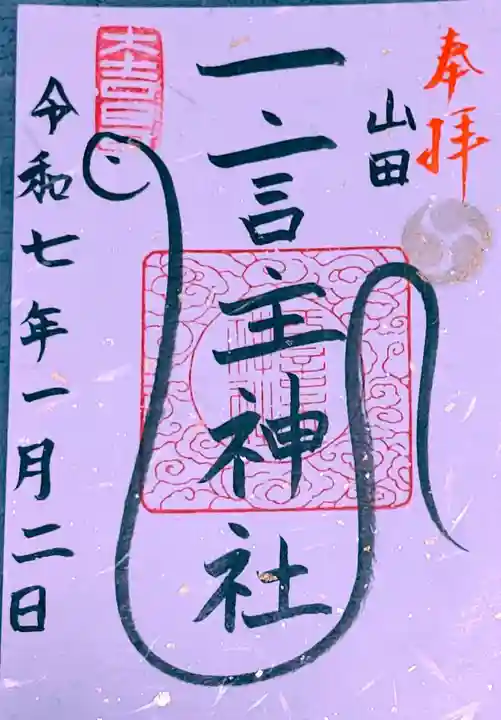 奉拝
山田
一言主神社
大吉日
令和七年一月二日